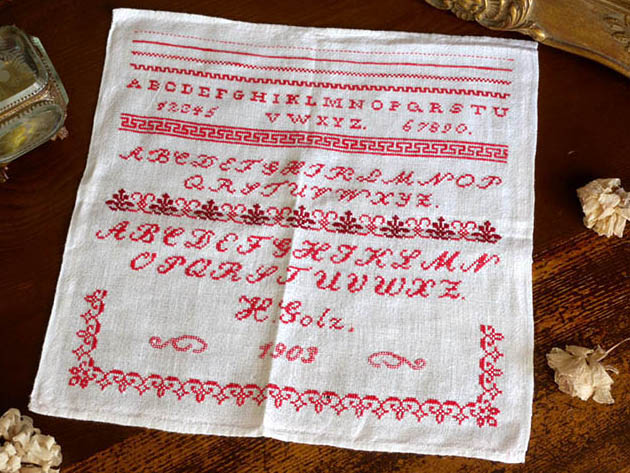 ABCDEFGHIKLMNOPQRSTU
12345 VWXYZ. 67890.
ABCDEFGHIKLMNOP
QRSTUVWXYZ.
ABCDEFGHIKLMN
OPQRSTUVWXZ.
H Golz.
1903